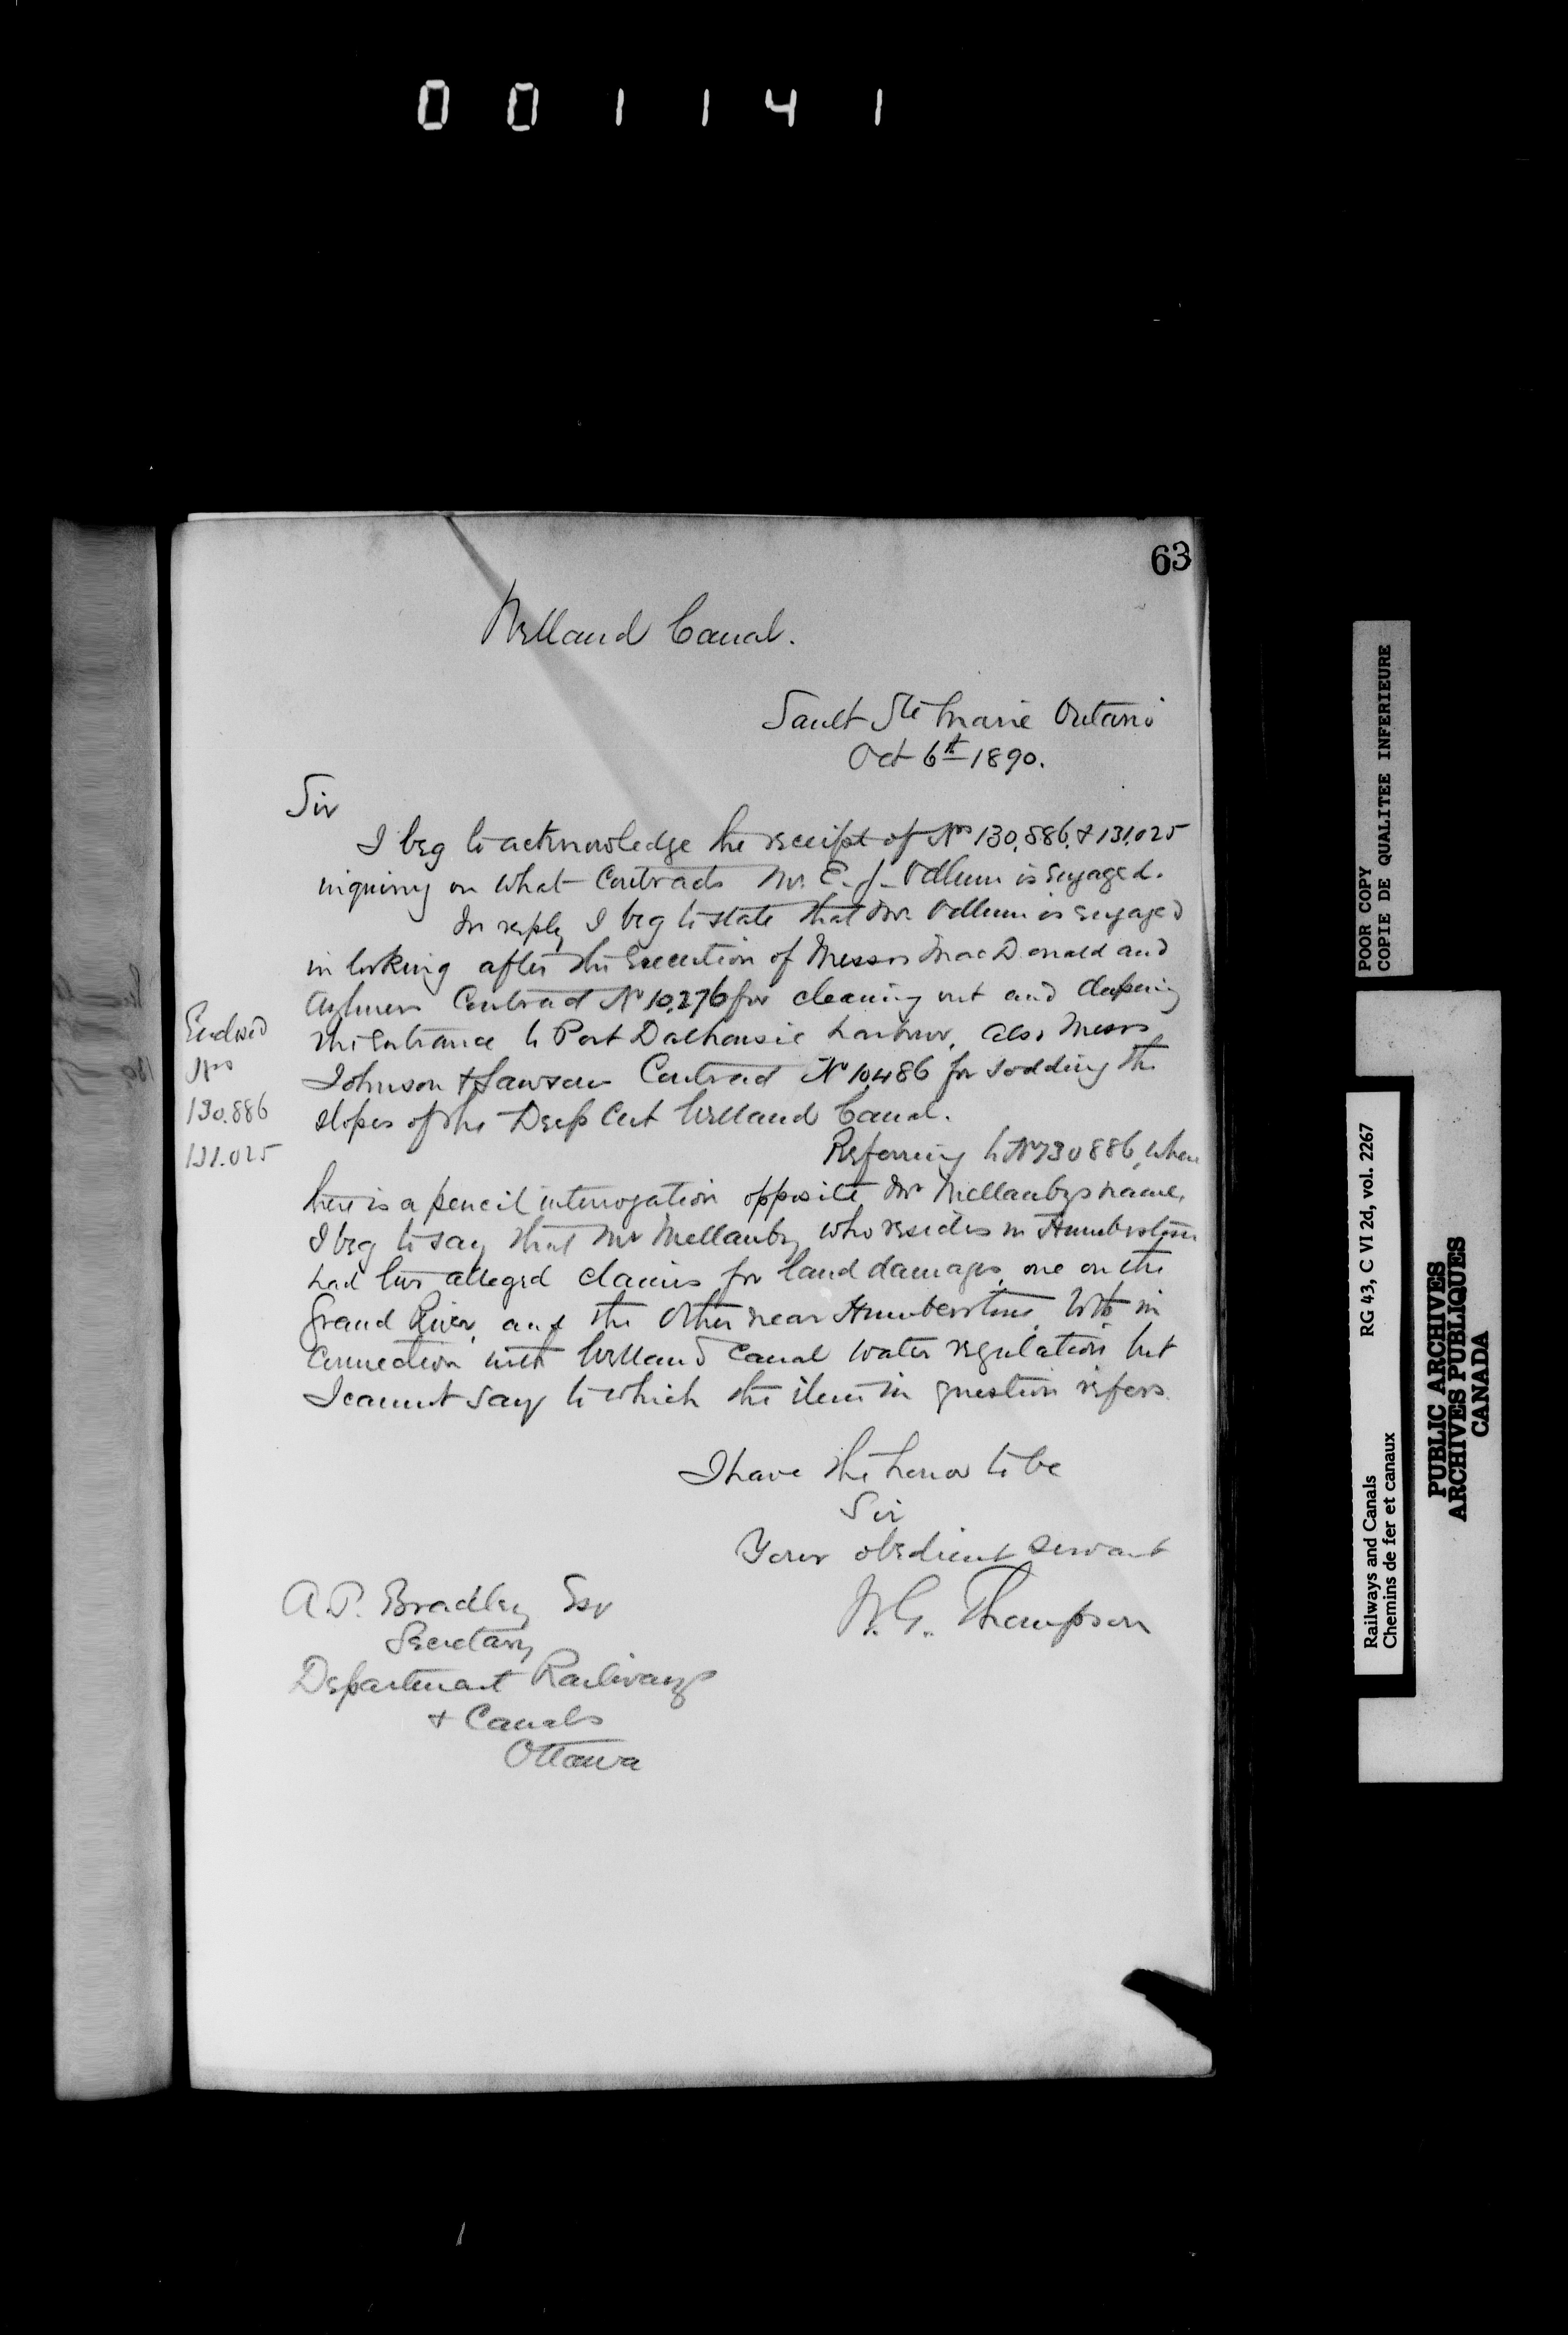 001141
63
Welland Canal.
Sault Ste Marie Ontario
Oct 6th 1890.
Sir
I beg to acknowledge the receipt of Nos 130,886, & 131,025
inquiring on what Contracts Mr. E. J. Odlum is Engaged.
In reply I beg to state that Mr. Odlum is engaged
in looking after the Execution of Messrs MacDonald and
Aylmers Contract No 10,276 for cleaning out and deepening
the Entrance to Port Dalhousie harbour, also Messrs
Johnson & Lawson Contract No 10,486 for sodding the
slopes of the Deep Cut Welland Canal.
Enclosed
Nos
130.886
131.025
Referring to No 130886, where
there is a pencil interrogation opposite Mr Mellanbys name,
I beg to say that Mr Mellanby who resides in Humberstone
had two alleged claims for land damages, one on the
Grand River, and the other near Humberstone, both in
Connection with Welland Canal water regulation, but
I cannot say to which the item in question refers.
I have the honor to be
Sir
Your obedient servant
W. G. Thompson
A. P. Bradley Esqr
Secretary
Department Railways
& Canals
Ottawa
POOR COPY
COPIE DE QUALITEE INFERIEURE
Railways and Canals RG 43, C VI 2d, vol. 2267
Chemins de fer et canaux
PUBLIC ARCHIVES
ARCHIVES PUBLIQUES
CANADA